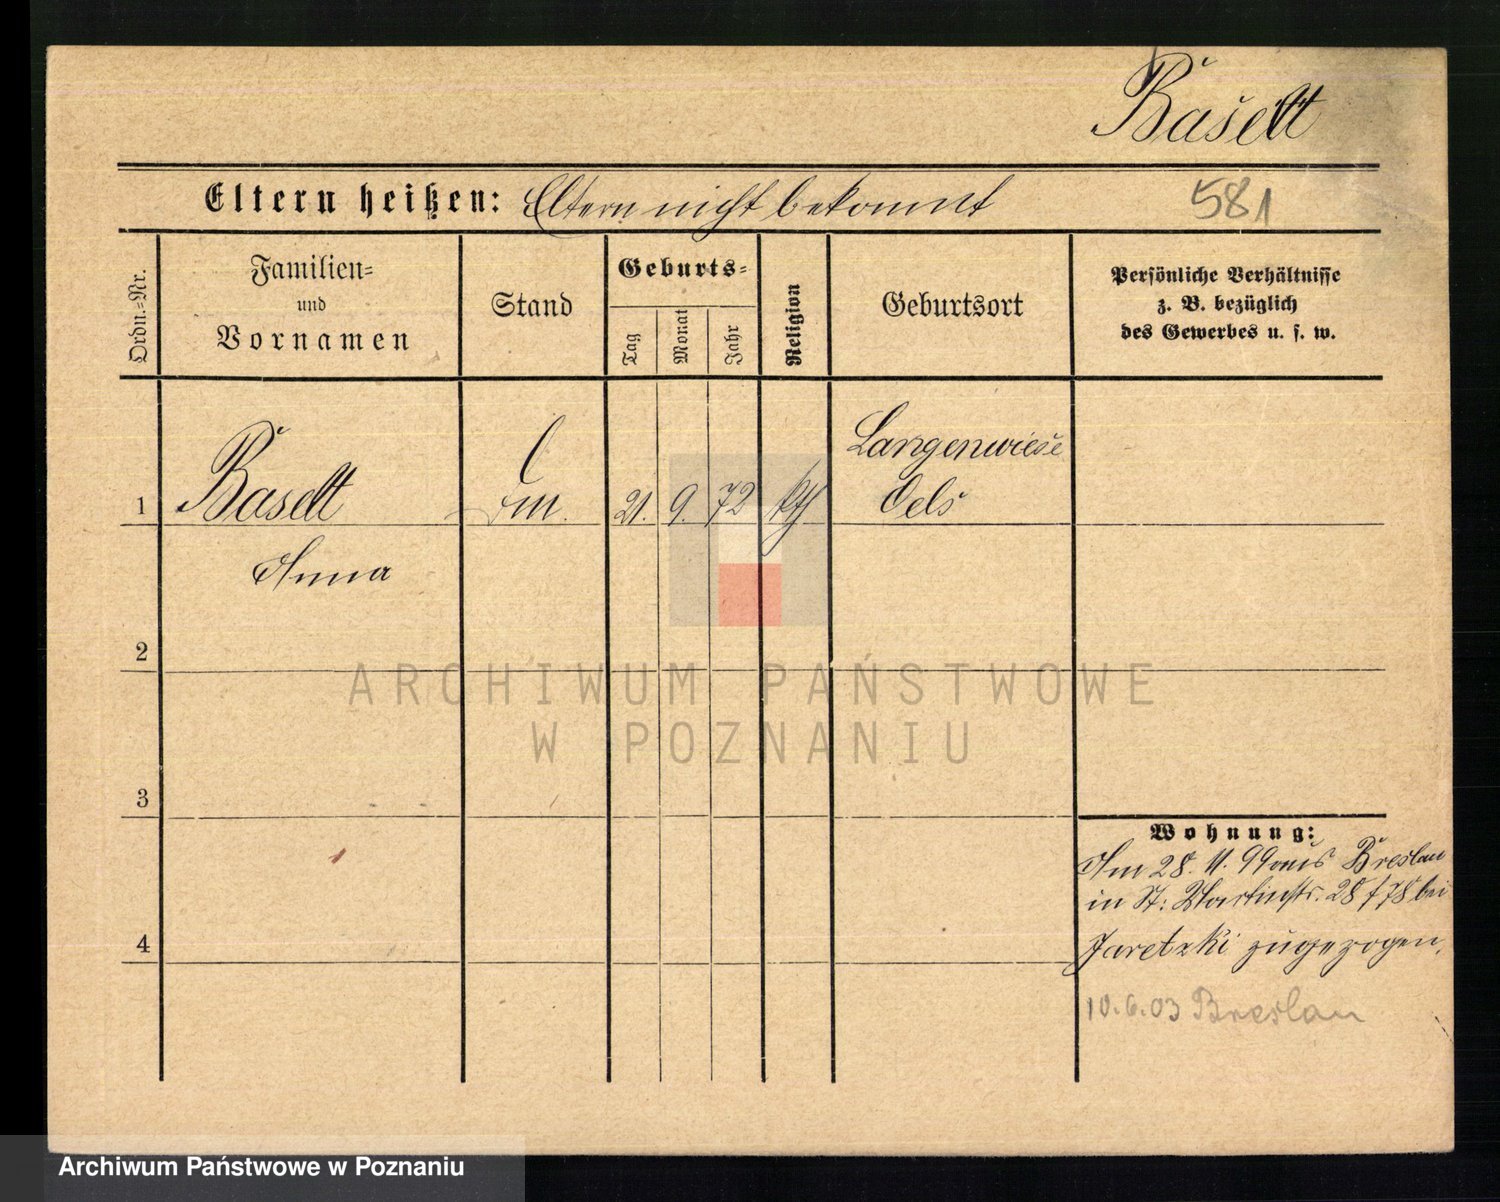 Baselt
Eltern heißen: Eltern nicht bekannt
581
Ordn.-Nr.
Familien-
und
Vornamen
Stand
Geburts-
Tag
Monat
Jahr
Religion
Geburtsort
Persönliche Verhältnisse
z. B. bezüglich
des Gewerbes u. s. w.
Langenwiese
1 Baselt 21. 9. 72 kth Oels
Anna
2
ARCHIWUM PAŃSTWOWE
W POZNANIU
3
Wohnung:
Am 28. 11. 99 aus Breslau
in St: Martinstr. 28 bei
4
Jaretzki zugezogen.
10.6.03 Breslau
Archiwum Państwowe w Poznaniu